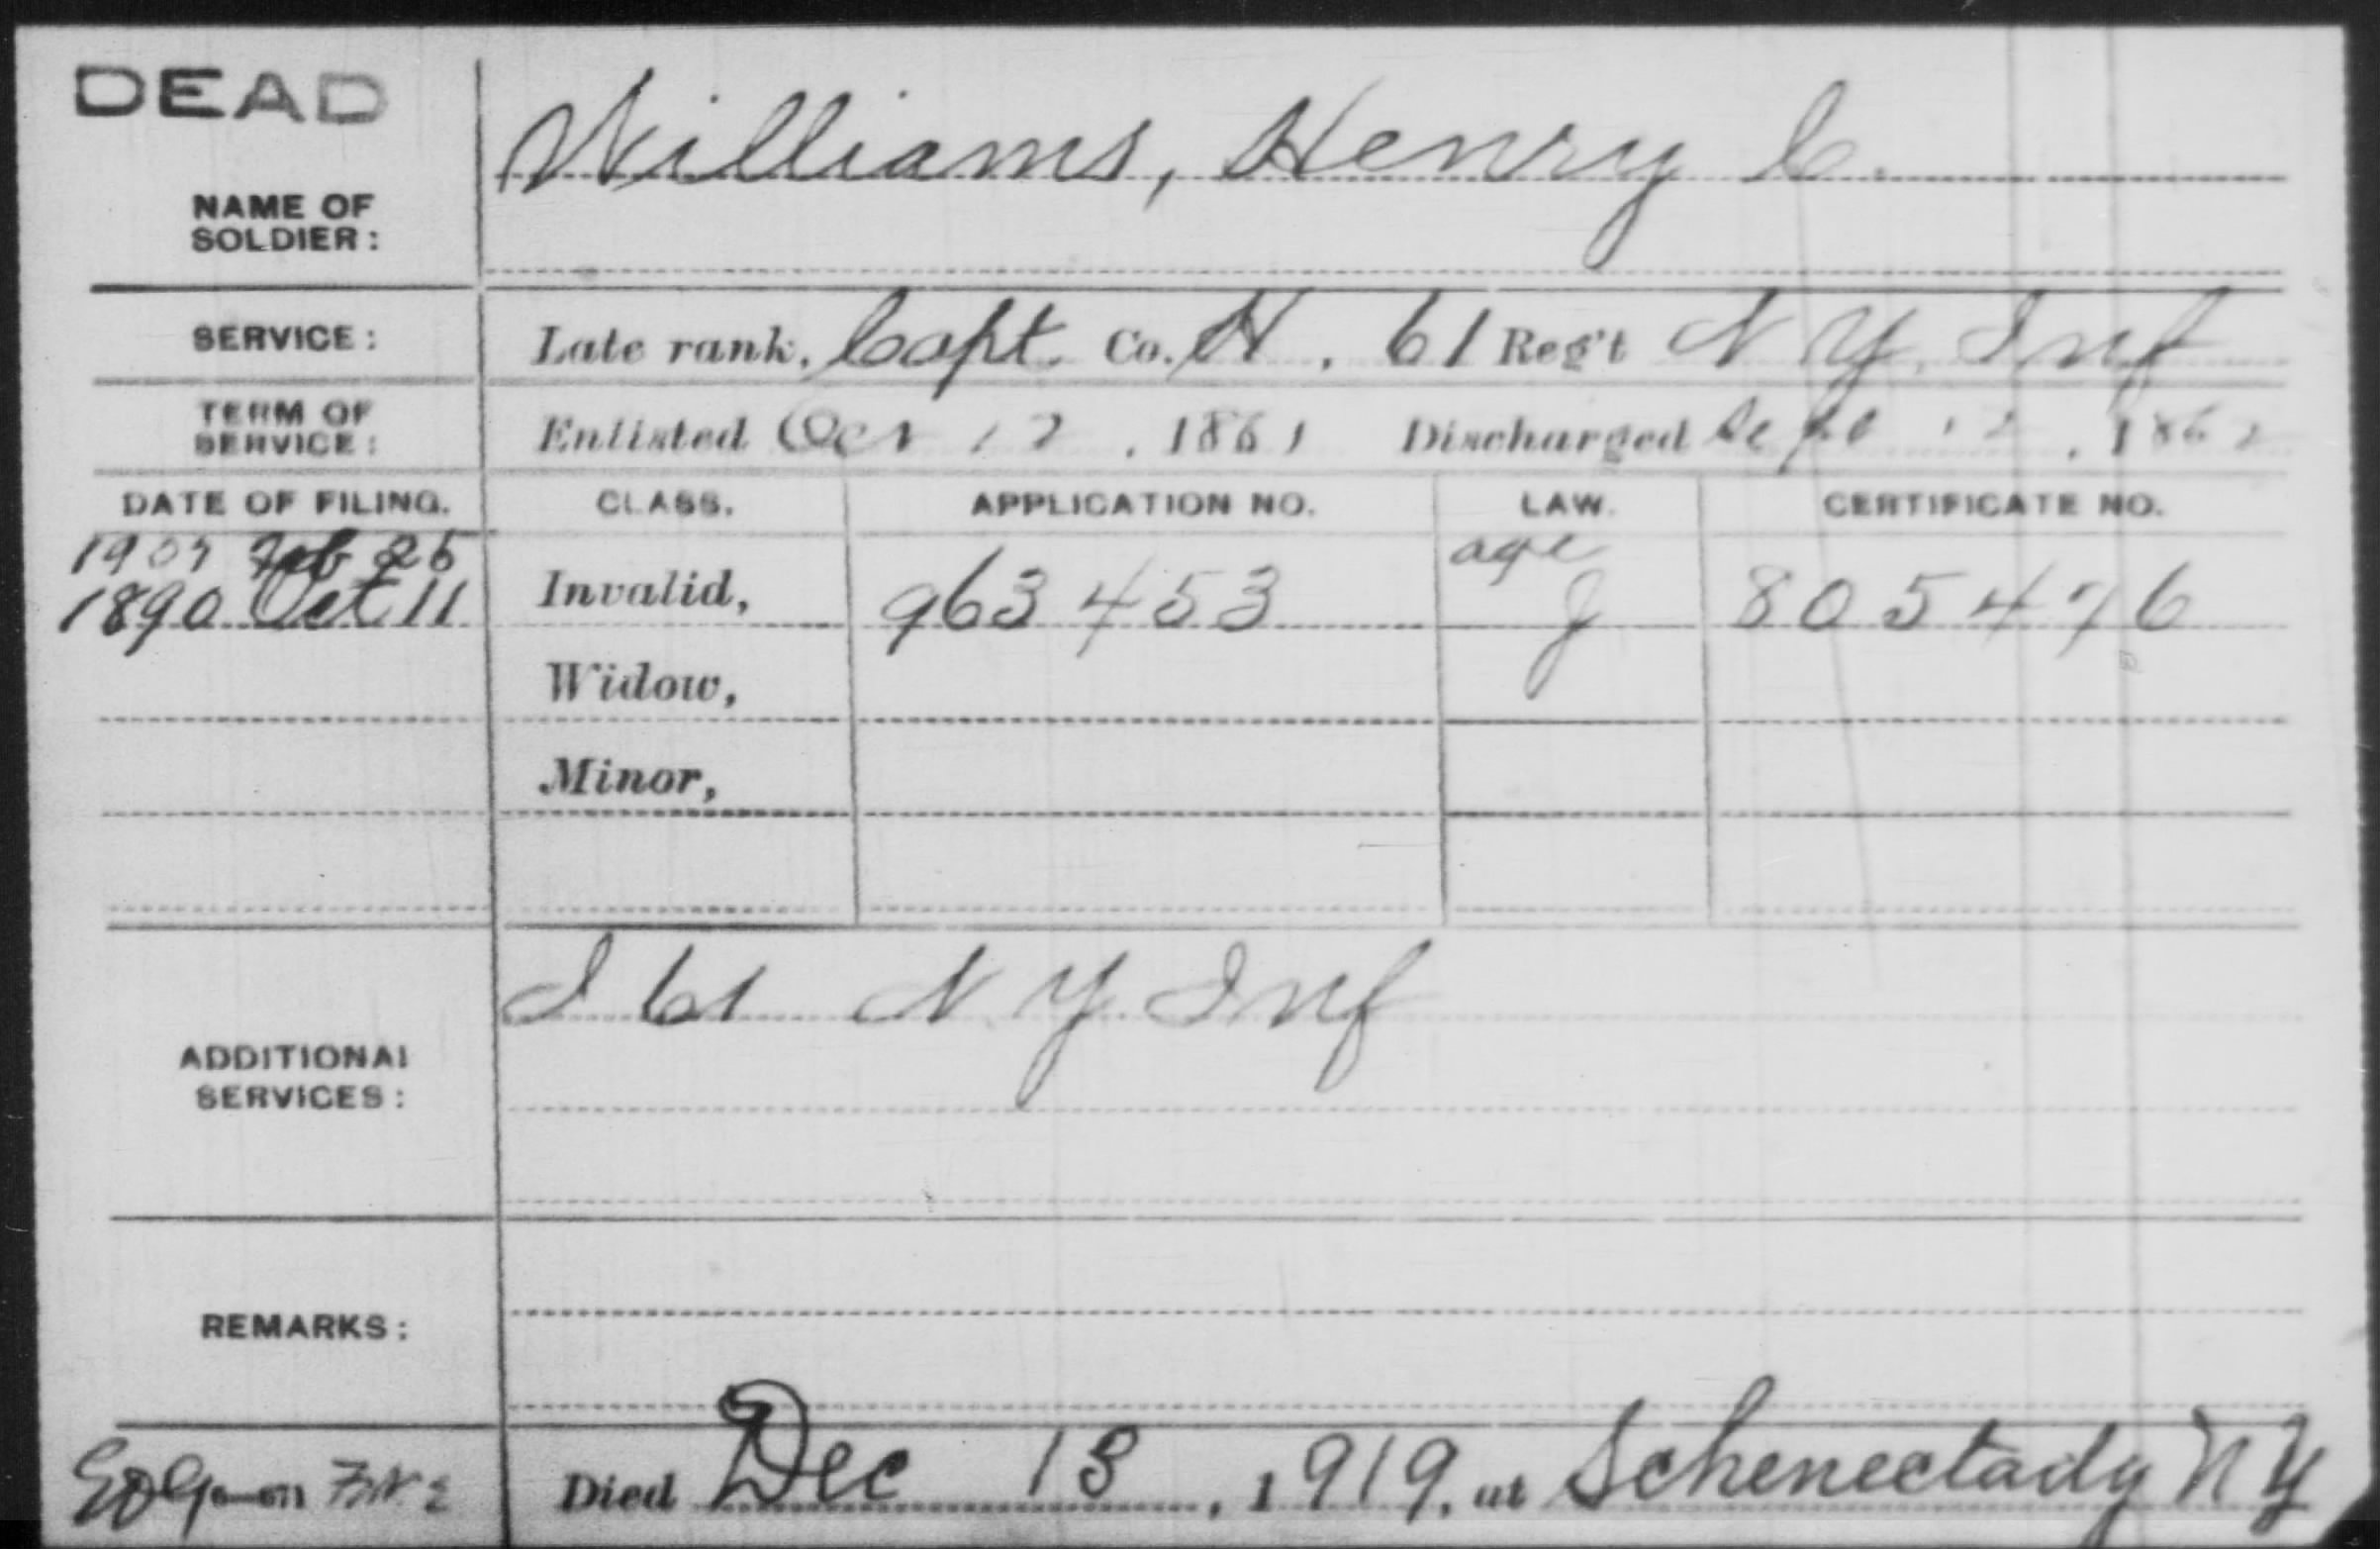 DEAD
NAME OF SOLDIER: Williams, Henry C.
SERVICE: Late rank, Capt. Co. H, 61 Reg't N Y Inf
TERM OF SERVICE: Enlisted Oct 12, 1861 Discharged Sept 12, 1862
DATE OF FILING. CLASS. APPLICATION NO. LAW. CERTIFICATE NO.
1907 Feb 26 age
1890 Oct 11 Invalid, 963453 J 805476
Widow,
Minor,
I 61 N Y Inf
ADDITIONAL SERVICES:
REMARKS:
Died Dec 13, 1919, at Schenectady N Y